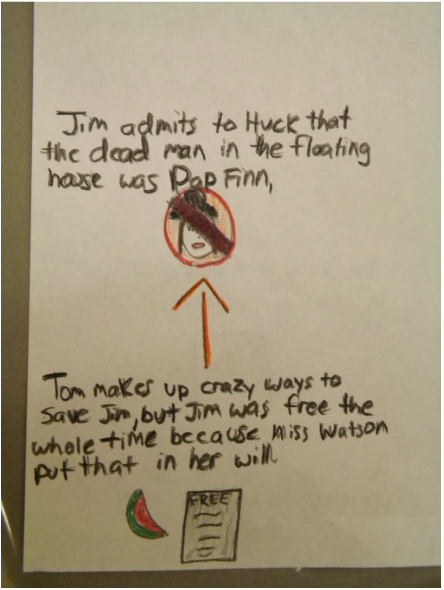 Jim admits to Huck that
the dead man in the floating
house was Pap Finn,
Tom makes up crazy ways to
save Jim, but Jim was free the
whole time because Miss Watson
put that in her will.
FREE